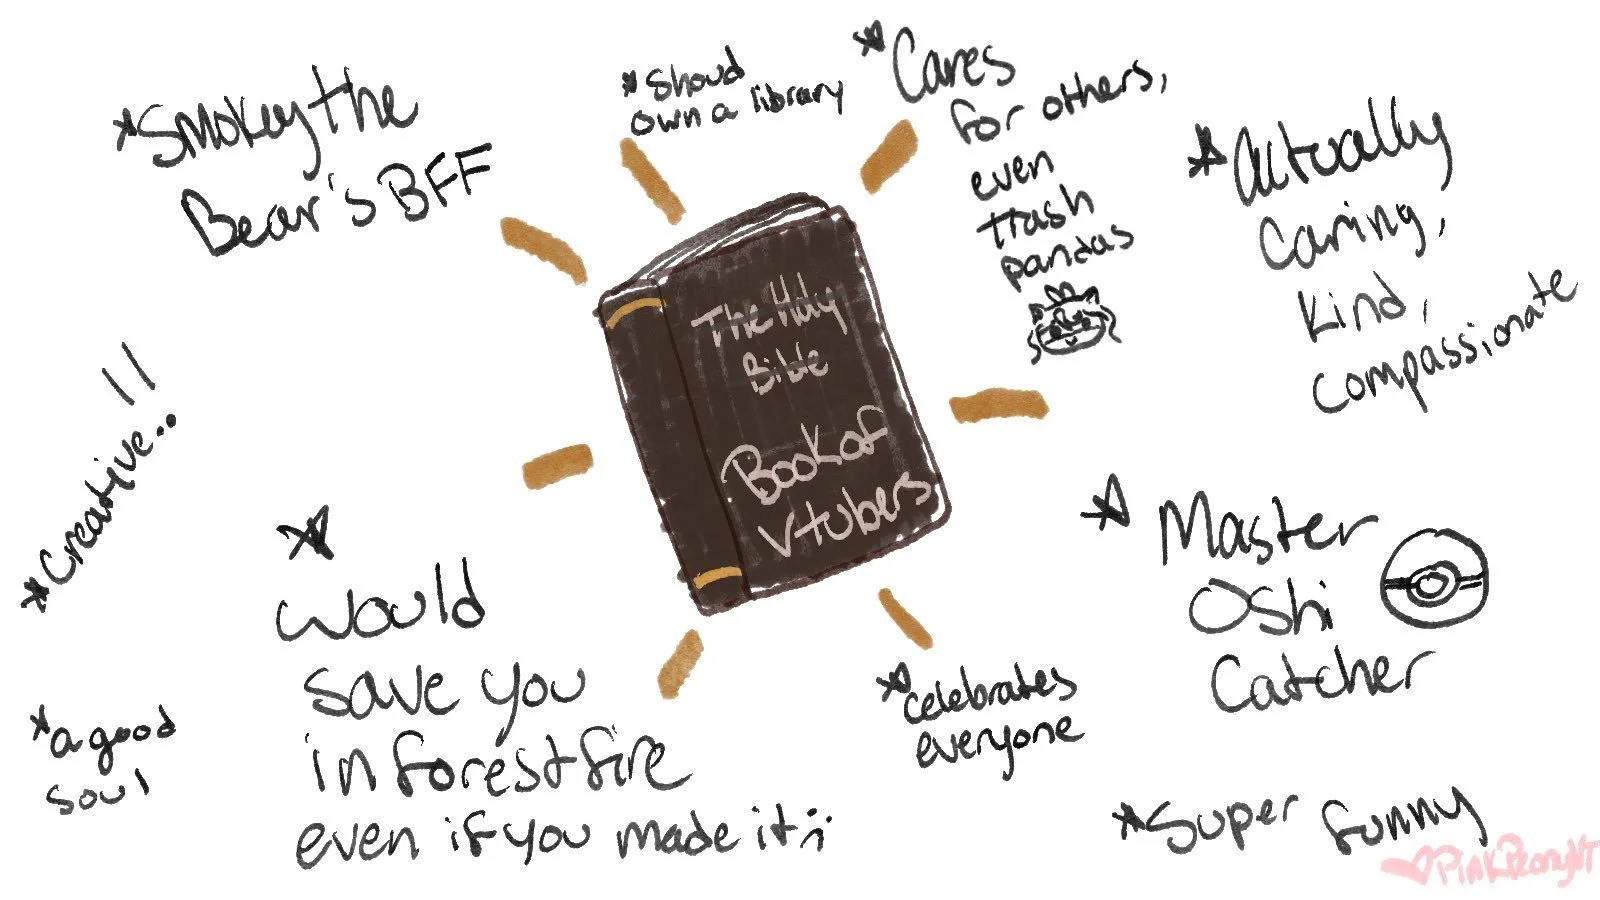 *Smokey the
Bear's BFF
*Shoud
own a library
*Cares
for others,
even
trash
pandas
*Actually
Caring,
Kind,
compassionate
*Creative..
The Holy
Bible
Book of
Vtubers
*Would
save you
in forest fire
even if you made it
*Master
Oshi
Catcher
*celebrates
everyone
*a good
soul
*Super funny
PinkPeonyVT